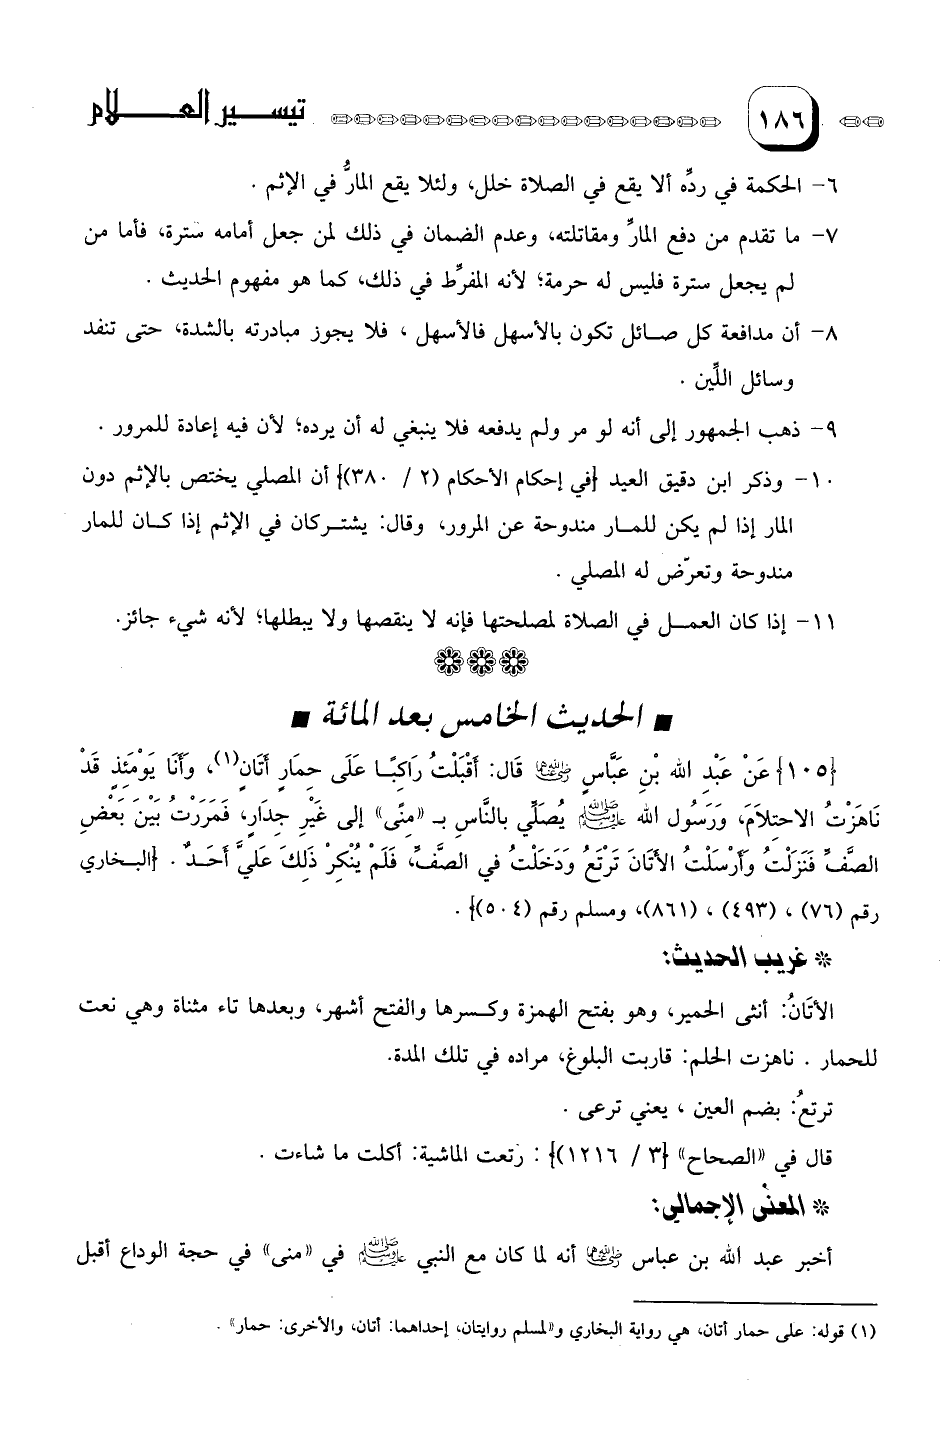 ١٨٦ تيسير العلام
٦- الحكمة في ردِّه ألا يقع في الصلاة خلل، ولئلا يقع المارُّ في الإثم .
٧- ما تقدم من دفع المارِّ ومقاتلته، وعدم الضمان في ذلك لمن جعل أمامه سترة، فأما من
لم يجعل سترة فليس له حرمة؛ لأنه المفرِّط في ذلك، كما هو مفهوم الحديث .
٨- أن مدافعة كل صائل تكون بالأسهل فالأسهل ، فلا يجوز مبادرته بالشدة، حتى تنفد
وسائل اللِّين .
٩- ذهب الجمهور إلى أنه لو مر ولم يدفعه فلا ينبغي له أن يرده؛ لأن فيه إعادة للمرور .
١٠- وذكر ابن دقيق العيد {في إحكام الأحكام (٢ / ٣٨٠)} أن المصلي يختص بالإثم دون
المار إذا لم يكن للمار مندوحة عن المرور، وقال: يشتركان في الإثم إذا كان للمار
مندوحة وتعرّض له المصلي .
١١- إذا كان العمل في الصلاة لمصلحتها فإنه لا ينقصها ولا يبطلها؛ لأنه شيء جائز.
■ الحديث الخامس بعد المائة ■
{١٠٥} عَنْ عَبْدِ الله بْنِ عَبَّاسٍ رضي الله عنهما قَال: أَقْبَلْتُ رَاكِبًا عَلَى حِمَارٍ أَتَانٍ(١)، وَأَنَا يَوْمَئِذٍ قَدْ
نَاهَزْتُ الاحتِلاَمَ، وَرَسُول الله ﷺ يُصَلِّي بالنَّاسِ بـ «مِنًى» إلى غَيْرِ جِدَارٍ، فَمَرَرْتُ بَيْنَ بَعْضِ
الصَّفِّ فَنَزَلْتُ وأَرْسَلْتُ الأَتَانَ تَرْتَعُ وَدَخَلْتُ في الصَّفِّ، فَلَمْ يُنْكِرْ ذَلِكَ عَلَيَّ أَحَدٌ . {البخاري
رقم (٧٦) ، (٤٩٣) ، (٨٦١)، ومسلم رقم (٥٠٤)} .
* غريب الحديث:
الأتَانُ: أنثى الحمير، وهو بفتح الهمزة وكسرها والفتح أشهر، وبعدها تاء مثناة وهي نعت
للحمار . ناهزت الحلم: قاربت البلوغ، مراده في تلك المدة.
ترتعُ: بضم العين ، يعني ترعى .
قال في «الصحاح» {٣ / ١٢١٦)} : رَتعت الماشية: أكلت ما شاءت .
* المعنى الإجمالي:
أخبر عبد الله بن عباس رضي الله عنهما أنه لما كان مع النبي ﷺ في «منى» في حجة الوداع أقبل
(١) قوله: على حمار أتان، هي رواية البخاري و«لمسلم روايتان، إحداهما: أتان، والأخرى: حمار» .